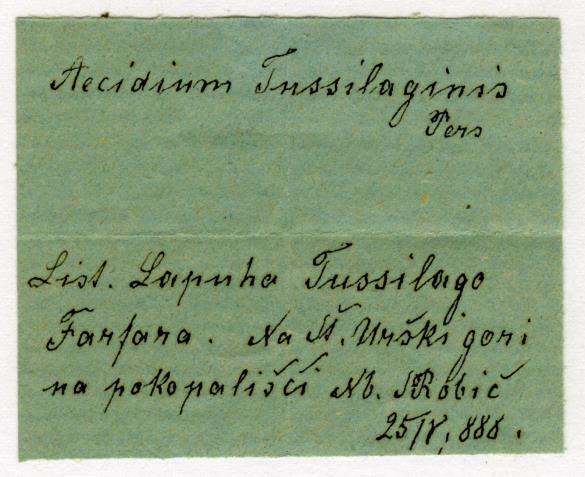 Aecidium Tussilaginis
Pers
List. Lapuha Tussilago
Farfara. Na Št. Urški gori
na pokopališči Nb. SRobič
25/V, 888.